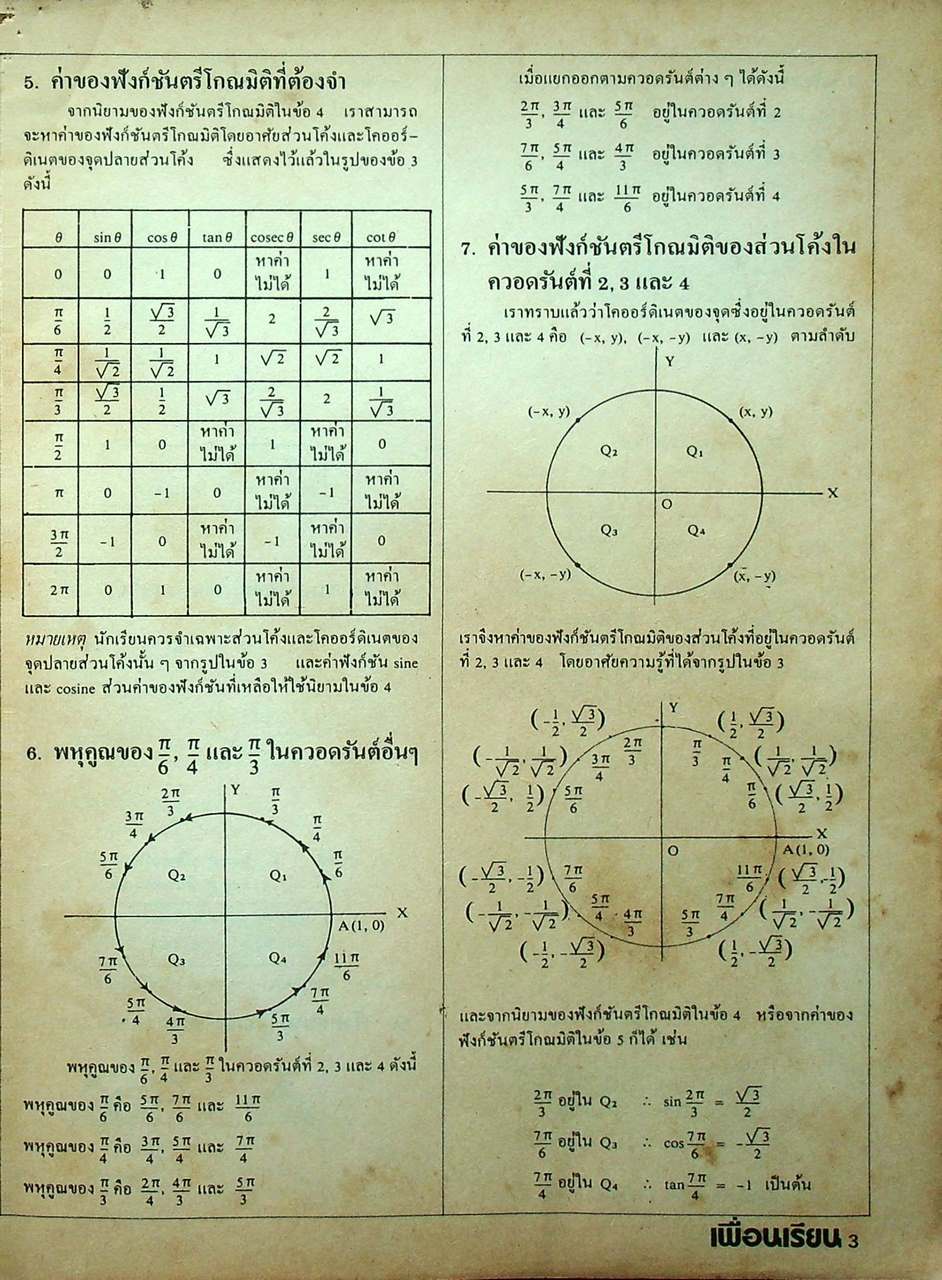 5. ค่าของฟังก์ชันตรีโกณมิติที่ต้องจำ
จากนิยามของฟังก์ชันตรีโกณมิติในข้อ 4 เราสามารถ
จะหาค่าของฟังก์ชันตรีโกณมิติโดยอาศัยส่วนโค้งและโคออร์-
ดิเนตของจุดปลายส่วนโค้ง ซึ่งแสดงไว้แล้วในรูปของข้อ 3
ดังนี้
θ sin θ cos θ tan θ cosec θ sec θ cot θ
0 0 1 0 หาค่าไม่ได้ 1 หาค่าไม่ได้
π/6 1/2 √3/2 1/√3 2 2/√3 √3
π/4 1/√2 1/√2 1 √2 √2 1
π/3 √3/2 1/2 √3 2/√3 2 1/√3
π/2 1 0 หาค่าไม่ได้ 1 หาค่าไม่ได้ 0
π 0 -1 0 หาค่าไม่ได้ -1 หาค่าไม่ได้
3π/2 -1 0 หาค่าไม่ได้ -1 หาค่าไม่ได้ 0
2π 0 1 0 หาค่าไม่ได้ 1 หาค่าไม่ได้
หมายเหตุ นักเรียนควรจำเฉพาะส่วนโค้งและโคออร์ดิเนตของ
จุดปลายส่วนโค้งนั้น ๆ จากรูปในข้อ 3 และค่าฟังก์ชัน sine
และ cosine ส่วนค่าของฟังก์ชันที่เหลือให้ใช้นิยามในข้อ 4
6. พหุคูณของ π/6, π/4 และ π/3 ในควอดรันต์อื่นๆ
2π/3 Y π/3
3π/4 π/4
5π/6 Q₂ Q₁ π/6
X
A(1, 0)
7π/6 Q₃ Q₄ 11π/6
5π/4 7π/4
4π/3 5π/3
พหุคูณของ π/6, π/4 และ π/3 ในควอดรันต์ที่ 2, 3 และ 4 ดังนี้
พหุคูณของ π/6 คือ 5π/6, 7π/6 และ 11π/6
พหุคูณของ π/4 คือ 3π/4, 5π/4 และ 7π/4
พหุคูณของ π/3 คือ 2π/4, 4π/3 และ 5π/3
เมื่อแยกออกตามควอดรันต์ต่าง ๆ ได้ดังนี้
2π/3, 3π/4 และ 5π/6 อยู่ในควอดรันต์ที่ 2
7π/6, 5π/4 และ 4π/3 อยู่ในควอดรันต์ที่ 3
5π/3, 7π/4 และ 11π/6 อยู่ในควอดรันต์ที่ 4
7. ค่าของฟังก์ชันตรีโกณมิติของส่วนโค้งใน
ควอดรันต์ที่ 2, 3 และ 4
เราทราบแล้วว่าโคออร์ดิเนตของจุดซึ่งอยู่ในควอดรันต์
ที่ 2, 3 และ 4 คือ (-x, y), (-x, -y) และ (x, -y) ตามลำดับ
Y
(-x, y) (x, y)
Q₂ Q₁
X
O
Q₃ Q₄
(-x, -y) (x, -y)
เราจึงหาค่าของฟังก์ชันตรีโกณมิติของส่วนโค้งที่อยู่ในควอดรันต์
ที่ 2, 3 และ 4 โดยอาศัยความรู้ที่ได้จากรูปในข้อ 3
Y
(-1/2, √3/2) 2π/3 π/3 (1/2, √3/2)
(-1/√2, 1/√2) 3π/4 π/4 (1/√2, 1/√2)
(-√3/2, 1/2) 5π/6 π/6 (√3/2, 1/2)
X
O A(1, 0)
(-√3/2, -1/2) 7π/6 11π/6 (√3/2, -1/2)
(-1/√2, -1/√2) 5π/4 7π/4 (1/√2, -1/√2)
(-1/2, -√3/2) 4π/3 5π/3 (1/2, -√3/2)
และจากนิยามของฟังก์ชันตรีโกณมิติในข้อ 4 หรือจากค่าของ
ฟังก์ชันตรีโกณมิติในข้อ 5 ก็ได้ เช่น
2π/3 อยู่ใน Q₂ ∴ sin 2π/3 = √3/2
7π/6 อยู่ใน Q₃ ∴ cos 7π/6 = -√3/2
7π/4 อยู่ใน Q₄ ∴ tan 7π/4 = -1 เป็นต้น
เพื่อนเรียน 3